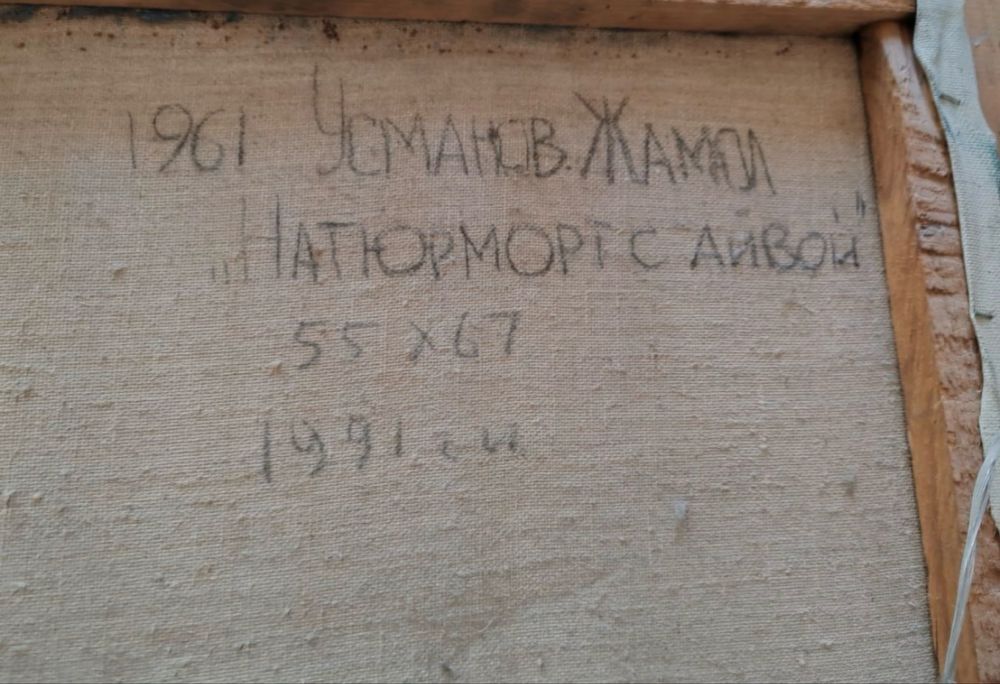 1961 Усманов. Жамал
„Натюрморт с айвой"
55 х 67
1991